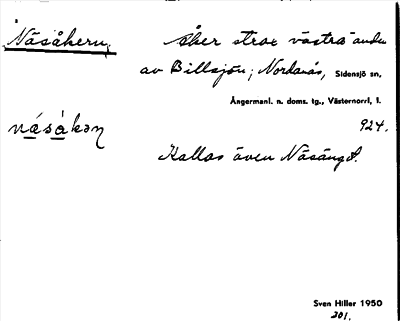 Näsåkern,
åker strax västra änden
av Billsjön; Nordanås, Sidensjö sn,
Ångermanl. n. doms. tg., Västernorrl. l.
924.
Kallas även Näsänget.
Sven Hiller 1950
201.